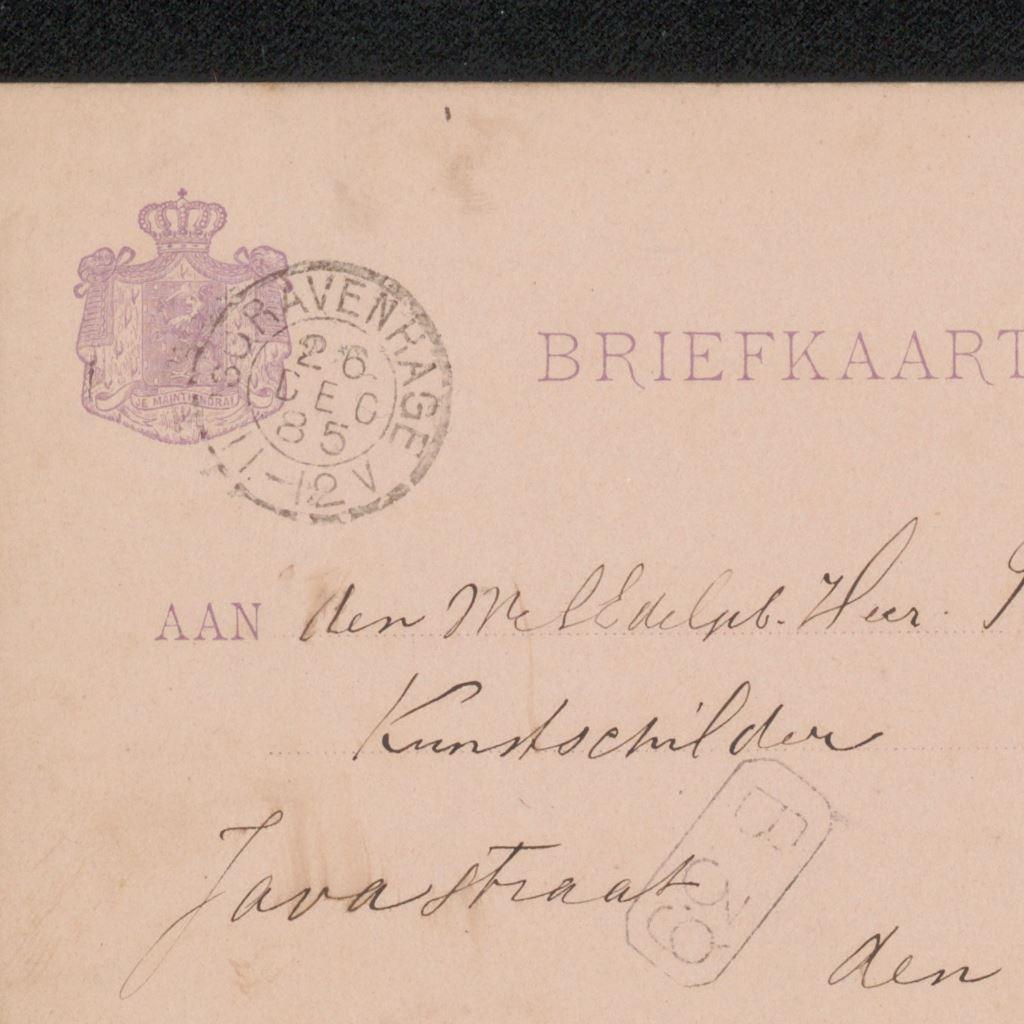 JE MAINTIENDRAI
'S GRAVENHAGE
26
DEC
85
11-12V
BRIEFKAART
AAN den WelEdelgeb. Heer
Kunstschilder
Javastraat
den